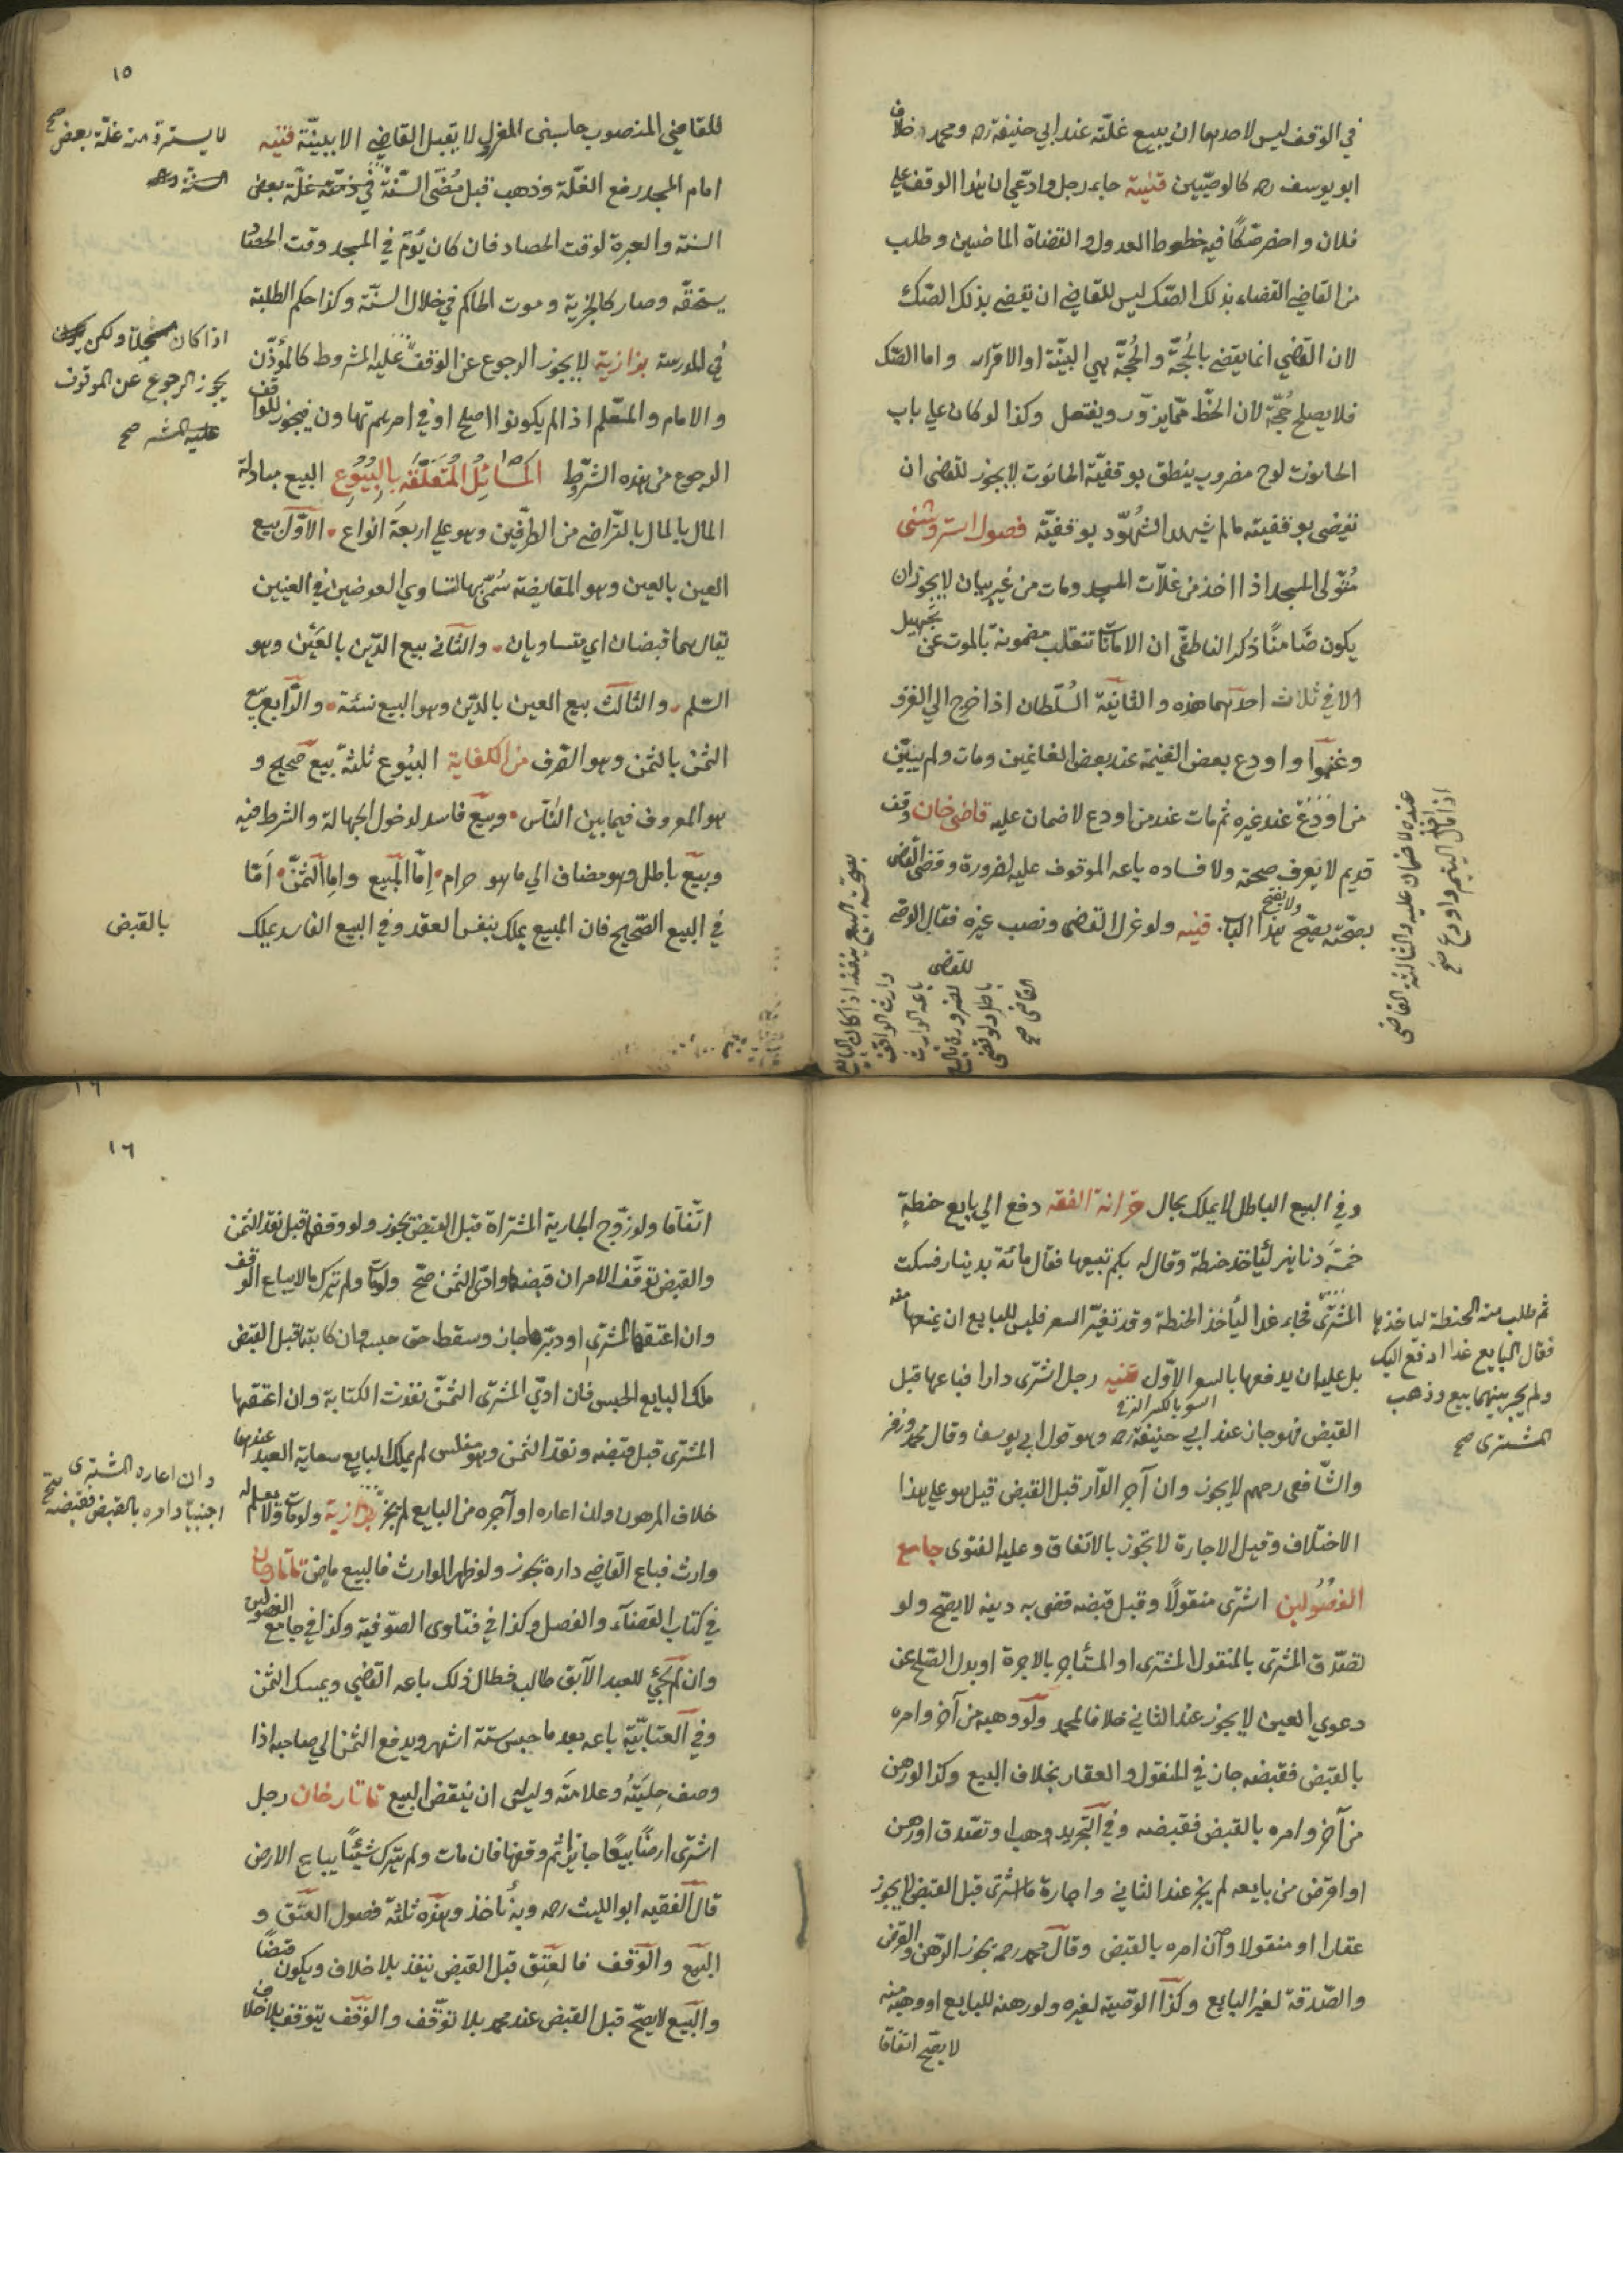 في الوقف ليس لاحدهما ان يبيع غلته عند ابي حنيفة ره ومحمد خلاف
ابو يوسف ره كالوصيين قنية جاء رجل وادعي ان هذا الوقف علي
فلان واحضر صكا فيه خطوط العدول والقضاة الماضيين وطلب
من القاضي القضاء بذلك الصك ليس للقاضي ان يقضي بذلك الصك
لان القاضي انما يقضي بالحجة والحجة هي البينة او الاقرار واما الصك
فلا يصلح حجة لان الخط مما يزور ويفتعل وكذا لو كان علي باب
الحانوت لوح مضروب ينطق بوقفية الحانوت لا يجوز للقضي ان
يقضي بوقفيته مالم يشهد الشهود بوقفيته فصول استروشنى
متولي المسجد اذا اخذ من غلات المسجد ومات من غير بيان لا يجوز ان
يكون ضامنا ذكر الناطقي ان الامانات تنقلب مضمونة بالموت عن تجهيل
الا في ثلاث احدهما هذه والثانية السلطان اذا خرج الي الغزو
وغنموا واودع بعض الغنيمة عند بعض الغانمين ومات ولم يبين
من اودع عند غيره ثم مات عند من اودع لا ضمان عليه قاضي خان وقف
قديم لا يعرف صحته ولا فساده باعه الموقوف عليه لضرورة وقضى القضي
بصحته يصح هذا البيع ولا يفتح هذا الباب قنيه ولو عزل القضي ونصب غيره فقال الوصي
للقضي
عنده لا ضمان عليه والثالثة القاضي
اذا مال اليتيم واودع صح
بصحت البيع ينفذ اذا كان البايع
وارث الواقف
باعه الوارث
لضرورة فالبيع
باطل ولو قضى
القاضي صح
١٥
للقاضي المنصوب حاسبني المعزول لا يقبل القاضي الا ببينة قنيه
امام المسجد رفع الغلة وذهب قبل مضي السنة في ذمته غلة بعض
لا يسترد منه غلة بعض صح
السنة
السنة والعبرة لوقت الحصاد فان كان يؤم في المسجد وقت الحصاد
يستحقه وصار كالجزية وموت الحاكم في خلال السنة وكذا حكم الطلبة
في المدرسة بزازية لا يجوز الرجوع عن الوقف عليه المشروط كالمؤذن
اذا كان مسجلا ولكن
يجوز الرجوع عن الموقوف
عليه المشر صح
والامام والمعلم اذا لم يكونوا اصلح او في امرهم تهاون فيجوز للواقف
الرجوع من هذه الشروط المسائل المتعلقه بالبيوع البيع مبادلة
المال بالمال بالتراضي من الطرفين وهو علي اربعة انواع الاول بيع
العين بالعين وهو المقايضة سمي بها لتساوي العوضين في العينين
يقال هما قيضان اي متساويان والثاني بيع الدين بالعين وهو
السلم والثالث بيع العين بالدين وهو البيع نسئة والرابع بيع
الثمن بالثمن وهو الصرف من الكفاية البيوع ثلثة بيع صحيح و
هو المعروف فيما بين الناس وبيع فاسد لدخول الجهالة والشرط فيه
وبيع باطل وهو مضاف الي ما هو حرام اما المبيع واما الثمن اما
في البيع الصحيح فان المبيع يملك بنفس العقد وفي البيع الفاسد يملك
بالقبض
وفي البيع الباطل لا يملك بحال خزانة الفقه دفع الي بايع حنطة
خمسة دنانير ليأخذ حنطة وقال له بكم تبيعها فقال مائة بدينار فسكت
المشتري فجاء غدا ليأخذ الحنطة وقد تغير السعر فليس للبايع ان يمنعها منه
ثم طلب منه الحنطة لياخذها
فقال البايع غدا ادفع اليك
ولم يجر بينهما بيع وذهب
المشترى صح
بل عليه ان يدفعها بالسعر الاول قنيه رجل اشترى دارا فباعها قبل
القبض فهو جائز عند ابي حنيفة ره وهو قول ابي يوسف وقال محمد وزفر
والشافعي رحمهم لا يجوز وان آجر الدار قبل القبض قيل هو علي هذا
الاختلاف وقيل الاجارة لا تجوز بالاتفاق وعليه الفتوى جامع
الفصولين اشترى منقولا وقبل قبضه قضى به دينه لا يصح ولو
تصدق المشترى بالمنقول المشترى او المستأجر بالاجرة او بدل الصلح عن
دعوي العين لا يجوز عند الثاني خلافا لمحمد ولو وهبه من آخر وامره
بالقبض فقبضه جاز في المنقول والعقار بخلاف البيع وكذا لو رهن
من آخر وامره بالقبض فقبضه وفي التجريد وهب او تصدق او رهن
او اقرض من بايعه لم يجز عند الثاني واجارة ما اشترى قبل القبض لا يجوز
عقارا او منقولا وان امره بالقبض وقال محمد ره يجوز الرهن والقرض
والصدقة لغير البايع وكذا الوصية لغيره ولو رهنه للبايع او وهبه منه
لا يصح اتفاقا
١٦
اتفاقا ولو زوج الجارية المشتراة قبل القبض يجوز ولو وقفها قبل نقد الثمن
والقبض توقف الامر ان قبضها وادى الثمن صح ولو مات ولم يترك مالا يباع الوقف
وان اعتقها المشتري او دبرها جاز وسقط حق حبسه وان كاتبها قبل القبض
ملك البايع الحبس فان ادي المشترى الثمن نفذت الكتابة وان اعتقها
المشترى قبل قبضه ونقد الثمن وهو مفلس لم يملك البايع سعاية العبد عندهما
خلاف المرهون وان اعاره او آجره من البايع لم يجز بزازية ولو مات ولا يعلم له
وان اعاره المشترى
اجنبيا وامره بالقبض فقبضه صح
وارث فباع القاضي داره يجوز ولو ظهر الوارث فالبيع ماض تاتارخان
في كتاب القضاء والفصل وكذا في فتاوى الصوفية وكذا في جامع الفصولين
وان لم يجئ للعبد الآبق طالب فطال ذلك باعه القضي ويمسك الثمن
وفي العتابية باعه بعد ما حبس ستة اشهر ويدفع الثمن الي صاحبه اذا
وصف حليته وعلامته وليس له ان ينقض البيع تاتارخان رجل
اشترى ارضا بيعا جايزا ثم وقفها فان مات ولم يترك شيئا يباع الارض
قال الفقيه ابو الليث ره وبه نأخذ وهذه ثلثة فصول العتق و
البيع والوقف فالعتق قبل القبض ينفذ بلا خلاف ويكون قبضا
والبيع لا يصح قبل القبض عند محمد بلا توقف والوقف يتوقف بلا خلاف